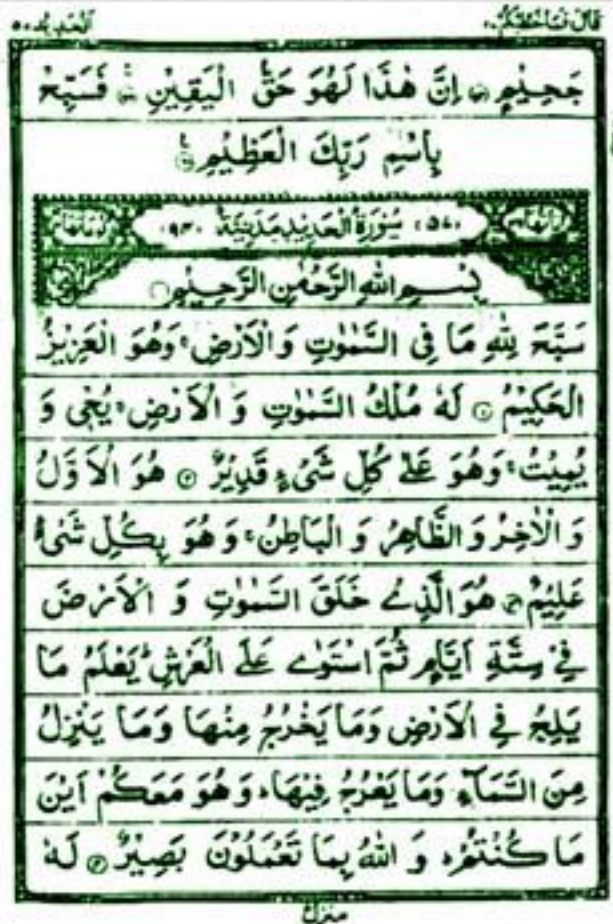 قال فما خطبكم ٢٧
الحديد ٥٧
جَحِيْمٍ ۙ اِنَّ هٰذَا لَهُوَ حَقُّ الْيَقِيْنِ ۚ فَسَبِّحْ
بِاسْمِ رَبِّكَ الْعَظِيْمِ
سُوْرَةُ الْحَدِيْدِ مَدَنِيَّةٌ
بِسْمِ اللّٰهِ الرَّحْمٰنِ الرَّحِيْمِ
سَبَّحَ لِلّٰهِ مَا فِى السَّمٰوٰتِ وَ الْاَرْضِ ۚ وَهُوَ الْعَزِيْزُ
الْحَكِيْمُ ١ لَهٗ مُلْكُ السَّمٰوٰتِ وَ الْاَرْضِ ۚ يُحْيٖ وَ
يُمِيْتُ ۚ وَهُوَ عَلٰى كُلِّ شَىْءٍ قَدِيْرٌ ٢ هُوَ الْاَوَّلُ
وَ الْاٰخِرُ وَ الظَّاهِرُ وَ الْبَاطِنُ ۚ وَ هُوَ بِكُلِّ شَىْءٍ
عَلِيْمٌ ٣ هُوَ الَّذِىْ خَلَقَ السَّمٰوٰتِ وَ الْاَرْضَ
فِىْ سِتَّةِ اَيَّامٍ ثُمَّ اسْتَوٰى عَلَى الْعَرْشِ ؕ يَعْلَمُ مَا
يَلِجُ فِى الْاَرْضِ وَمَا يَخْرُجُ مِنْهَا وَمَا يَنْزِلُ
مِنَ السَّمَآءِ وَمَا يَعْرُجُ فِيْهَا ؕ وَ هُوَ مَعَكُمْ اَيْنَ
مَا كُنْتُمْ ؕ وَ اللّٰهُ بِمَا تَعْمَلُوْنَ بَصِيْرٌ ٤ لَهٗ
منزل